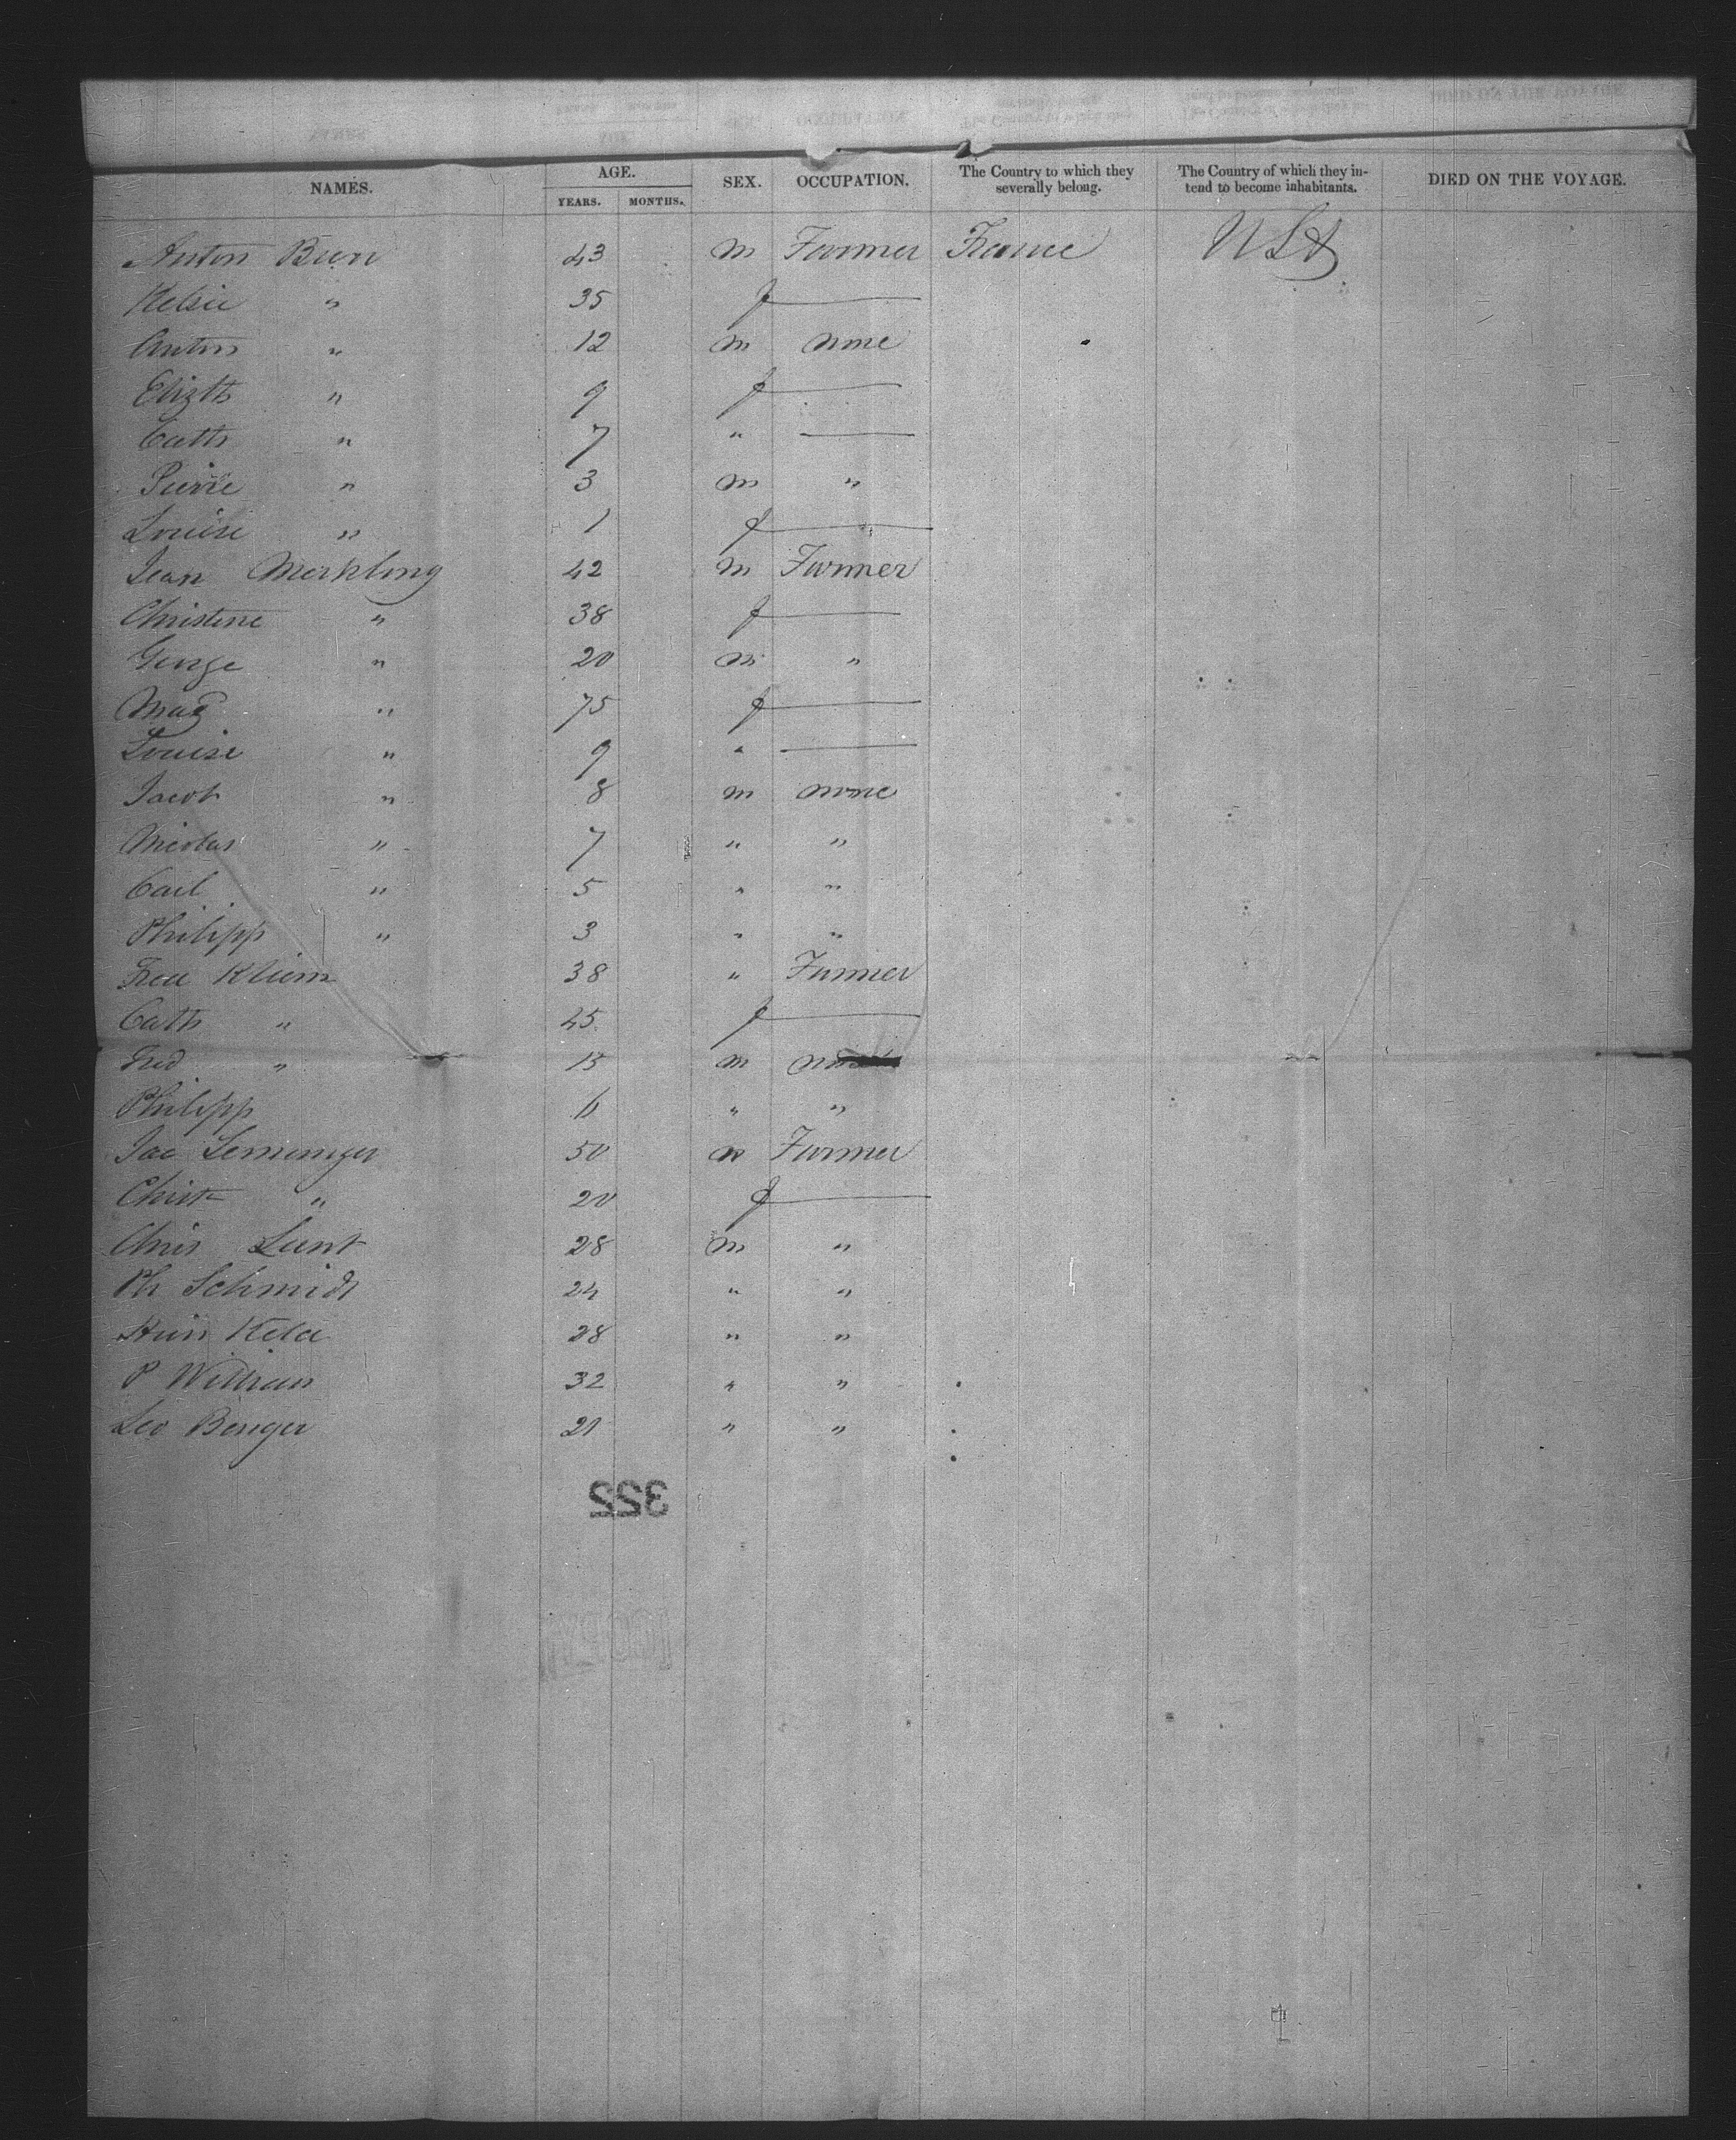 NAMES. AGE. SEX. OCCUPATION. The Country to which they severally belong. The Country of which they intend to become inhabitants. DIED ON THE VOYAGE.
YEARS. MONTHS.
Anton 43 m Farmer France USA
" 35 f
Anton " 12 m none
Elizth " 9 f
Cath " 7 "
Pierre " 3 m "
Louise " 1 f
Jean Merkling 42 m Farmer
Christine " 38 f
George " 20 m "
Mag " 75 f
Louise " 9 "
Jacob " 8 m none
Nicolas " 7 " "
Carl " 5 " "
Philipp " 3 " "
Fred 38 " Farmer
Cath " 45 f
Fred " 13 m
Philipp 6 " "
Jac 50 m Farmer
Christ " 20 f
Chris 28 m "
Ph Schmidt 24 " "
28 " "
P 32 " "
Leo Benger 21 " "
322